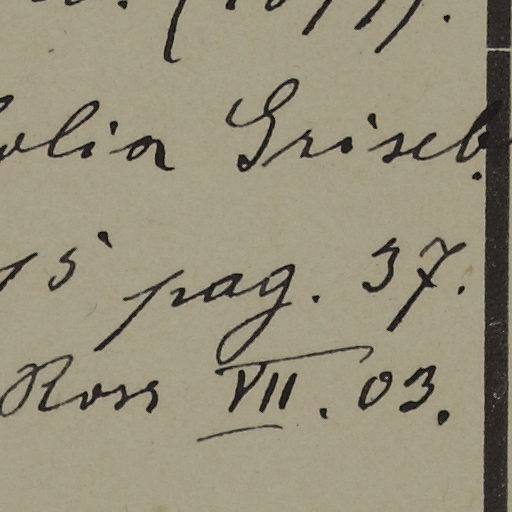 olia Griseb.
15 pag. 37.
Ross VII. 03.